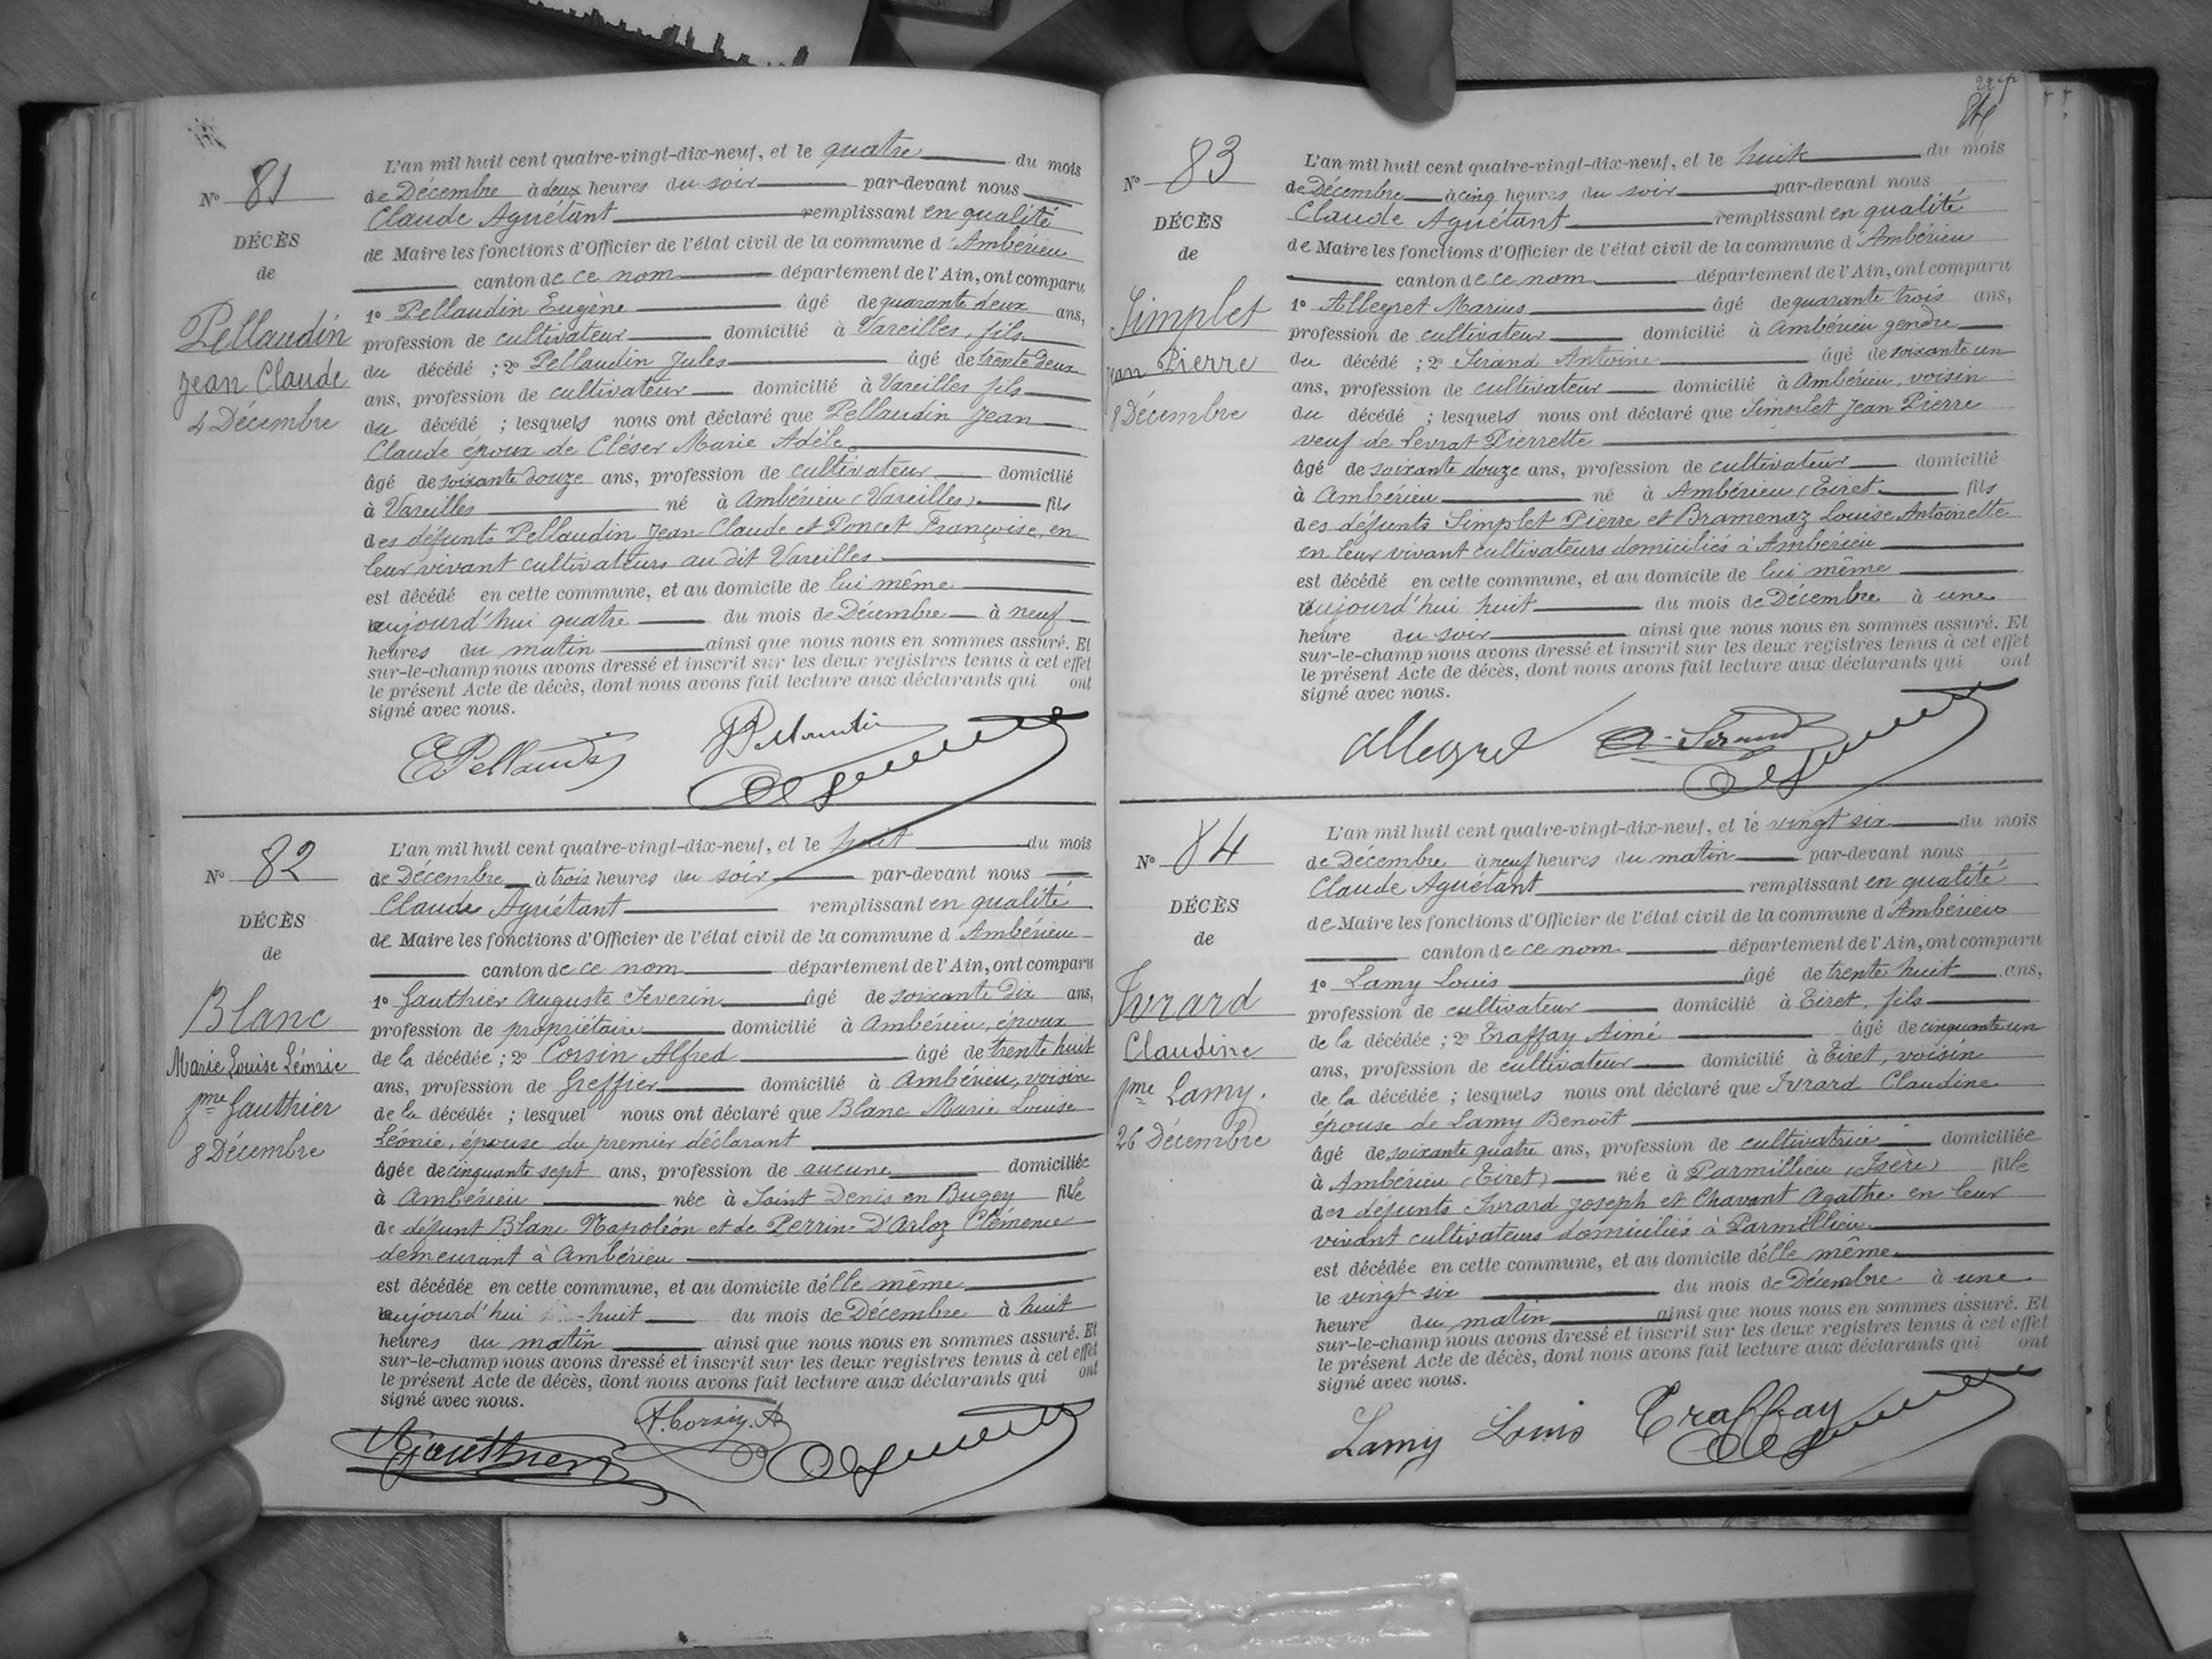 N° 81
DÉCÈS
de
Pellaudin
Jean Claude
4 Décembre
L'an mil huit cent quatre-vingt-dix-neuf, et le quatre du mois
de Décembre à deux heures du soir par-devant nous
Claude Aguétant remplissant en qualité
de Maire les fonctions d'Officier de l'état civil de la commune d'Ambérieu
canton de ce nom département de l'Ain, ont comparu
1° Pellaudin Eugène âgé de quarante deux ans,
profession de cultivateur domicilié à Vareilles, fils
du décédé ; 2° Pellaudin Jules âgé de trente deux
ans, profession de cultivateur domicilié à Vareilles fils
du décédé ; lesquels nous ont déclaré que Pellaudin Jean
Claude époux de Cléser Marie Adèle
âgé de soixante douze ans, profession de cultivateur domicilié
à Vareilles né à Ambérieu (Vareilles) fils
des défunts Pellaudin Jean Claude et Poncet Françoise, en
leur vivant cultivateurs au dit Vareilles
est décédé en cette commune, et au domicile de lui même
aujourd'hui quatre du mois de Décembre à neuf
heures du matin ainsi que nous nous en sommes assuré. Et
sur-le-champ nous avons dressé et inscrit sur les deux registres tenus à cet effet
le présent Acte de décès, dont nous avons fait lecture aux déclarants qui ont
signé avec nous.
E Pellaudin
J Pellaudin
N° 82
DÉCÈS
de
Blanc
Marie Louise Léonie
fme Gauthier
8 Décembre
L'an mil huit cent quatre-vingt-dix-neuf, et le huit du mois
de Décembre à trois heures du soir par-devant nous
Claude Aguétant remplissant en qualité
de Maire les fonctions d'Officier de l'état civil de la commune d'Ambérieu
canton de ce nom département de l'Ain, ont comparu
1° Gauthier Auguste Severin âgé de soixante dix ans,
profession de propriétaire domicilié à Ambérieu, époux
de la décédée ; 2° Corsin Alfred âgé de trente huit
ans, profession de Greffier domicilié à Ambérieu, voisin
de la décédée ; lesquel nous ont déclaré que Blanc Marie Louise
Léonie, épouse du premier déclarant
âgée de cinquante sept ans, profession de aucune domiciliée
à Ambérieu née à Saint Denis en Bugey fille
de défunt Blanc Napoléon et de Perrine D'Arloz Clémence
demeurant à Ambérieu
est décédée en cette commune, et au domicile d'elle même
aujourd'hui huit du mois de Décembre à huit
heures du matin ainsi que nous nous en sommes assuré. Et
sur-le-champ nous avons dressé et inscrit sur les deux registres tenus à cet effet
le présent Acte de décès, dont nous avons fait lecture aux déclarants qui ont
signé avec nous.
A Gauthier
A. Corsin
N° 83
DÉCÈS
de
Simplet
Jean Pierre
8 Décembre
L'an mil huit cent quatre-vingt-dix-neuf, et le huit du mois
de Décembre à cinq heures du soir par-devant nous
Claude Aguétant remplissant en qualité
de Maire les fonctions d'Officier de l'état civil de la commune d'Ambérieu
canton de ce nom département de l'Ain, ont comparu
1° Allegret Marius âgé de quarante trois ans,
profession de cultivateur domicilié à Ambérieu gendre
du décédé ; 2° Sirand Antoine âgé de soixante un
ans, profession de cultivateur domicilié à Ambérieu, voisin
du décédé ; lesquels nous ont déclaré que Simplet Jean Pierre
veuf de Levrat Pierrette
âgé de soixante douze ans, profession de cultivateur domicilié
à Ambérieu né à Ambérieu (Tiret fils
des défunts Simplet Pierre et Bramenaz Louise Antoinette
en leur vivant cultivateurs domiciliés à Ambérieu
est décédé en cette commune, et au domicile de lui même
aujourd'hui huit du mois de Décembre à une
heure du soir ainsi que nous nous en sommes assuré. Et
sur-le-champ nous avons dressé et inscrit sur les deux registres tenus à cet effet
le présent Acte de décès, dont nous avons fait lecture aux déclarants qui ont
signé avec nous.
Allegret
A. Sirand
N° 84
DÉCÈS
de
Ivrard
Claudine
fme Lamy.
26 Décembre
L'an mil huit cent quatre-vingt-dix-neuf, et le vingt six du mois
de Décembre à neuf heures du matin par-devant nous
Claude Aguétant remplissant en qualité
de Maire les fonctions d'Officier de l'état civil de la commune d'Ambérieu
canton de ce nom département de l'Ain, ont comparu
1° Lamy Louis âgé de trente huit ans,
profession de cultivateur domicilié à Tiret, fils
de la décédée ; 2° Traffay Aimé âgé de cinquante un
ans, profession de cultivateur domicilié à Tiret, voisin
de la décédée ; lesquels nous ont déclaré que Ivrard Claudine
épouse de Lamy Benoît
âgé de soixante quatre ans, profession de cultivatrice domiciliée
à Ambérieu (Tiret) née à Parmillieu (Isère) fille
des défunts Ivrard Joseph et Chavant Agathe en leur
vivant cultivateurs domiciliés à Parmillieu
est décédée en cette commune, et au domicile d'elle même
le vingt six du mois de Décembre à une
heure du matin ainsi que nous nous en sommes assuré. Et
sur-le-champ nous avons dressé et inscrit sur les deux registres tenus à cet effet
le présent Acte de décès, dont nous avons fait lecture aux déclarants qui ont
signé avec nous.
Lamy Louis
Traffay